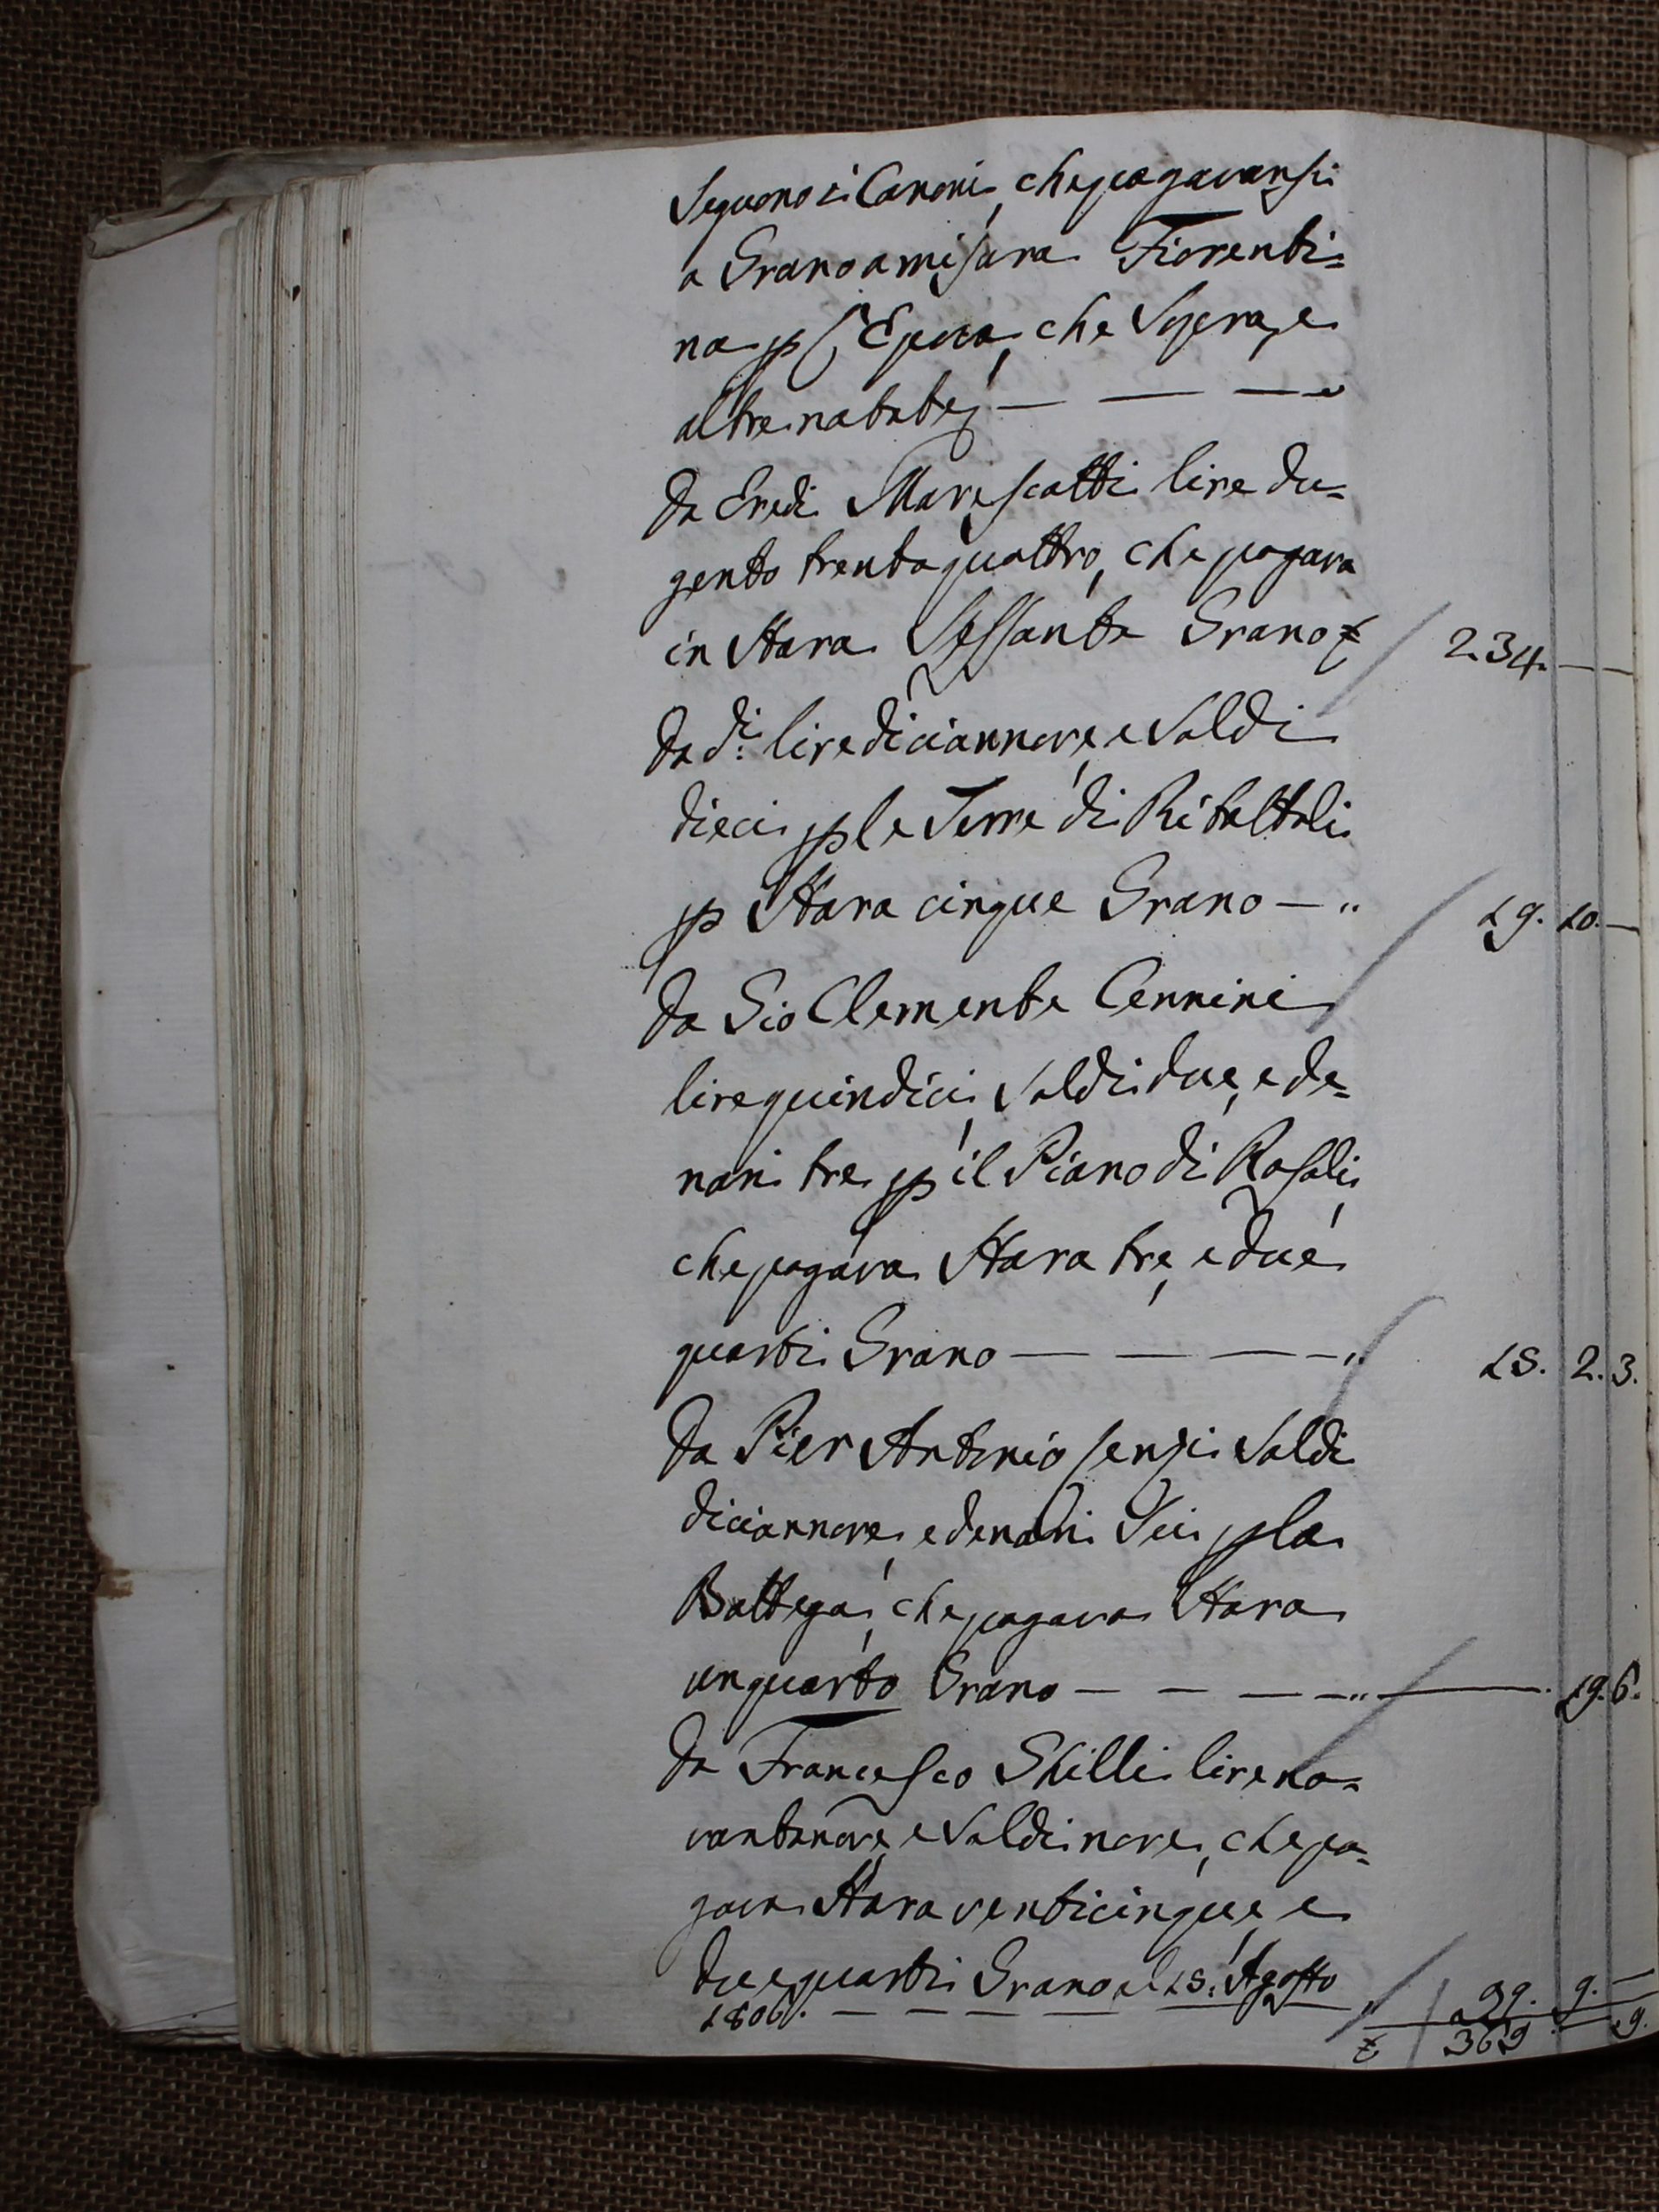 Seguono i Canoni, che pagavansi
a Grano a misura Fiorenti=
na p l'Epoca, che Sopra, e
altre notate, — — —
Da Eredi Marescotti lire du=
gento trentaquattro, che pagava
in Stara Sessanta Grano £ 234. —
Da d.i lire diciannove, e Soldi
dieci p le Terre di Ribattoli
p Stara cinque Grano — " 19. 10. —
Da Gio Clemente Cennini
lire quindici, Soldi due, e de=
nari tre p il Piano di Rosoli,
che pagava Stara tre, e due
quarti Grano — — — — " 15. 2. 3.
Da Pier Antonio Sensi Soldi
diciannove, e denari Sei p la
Bottega, che pagava Stara
un quarto Grano — — — — " — 19. 6.
Da Francesco Ghilli lire no=
vantanove, e Soldi nove, che pa=
gava Stara venticinque, e
due quarti Grano al 15. Agosto
1806. — — — — — " 99. 9. —
£ 369 — 9.